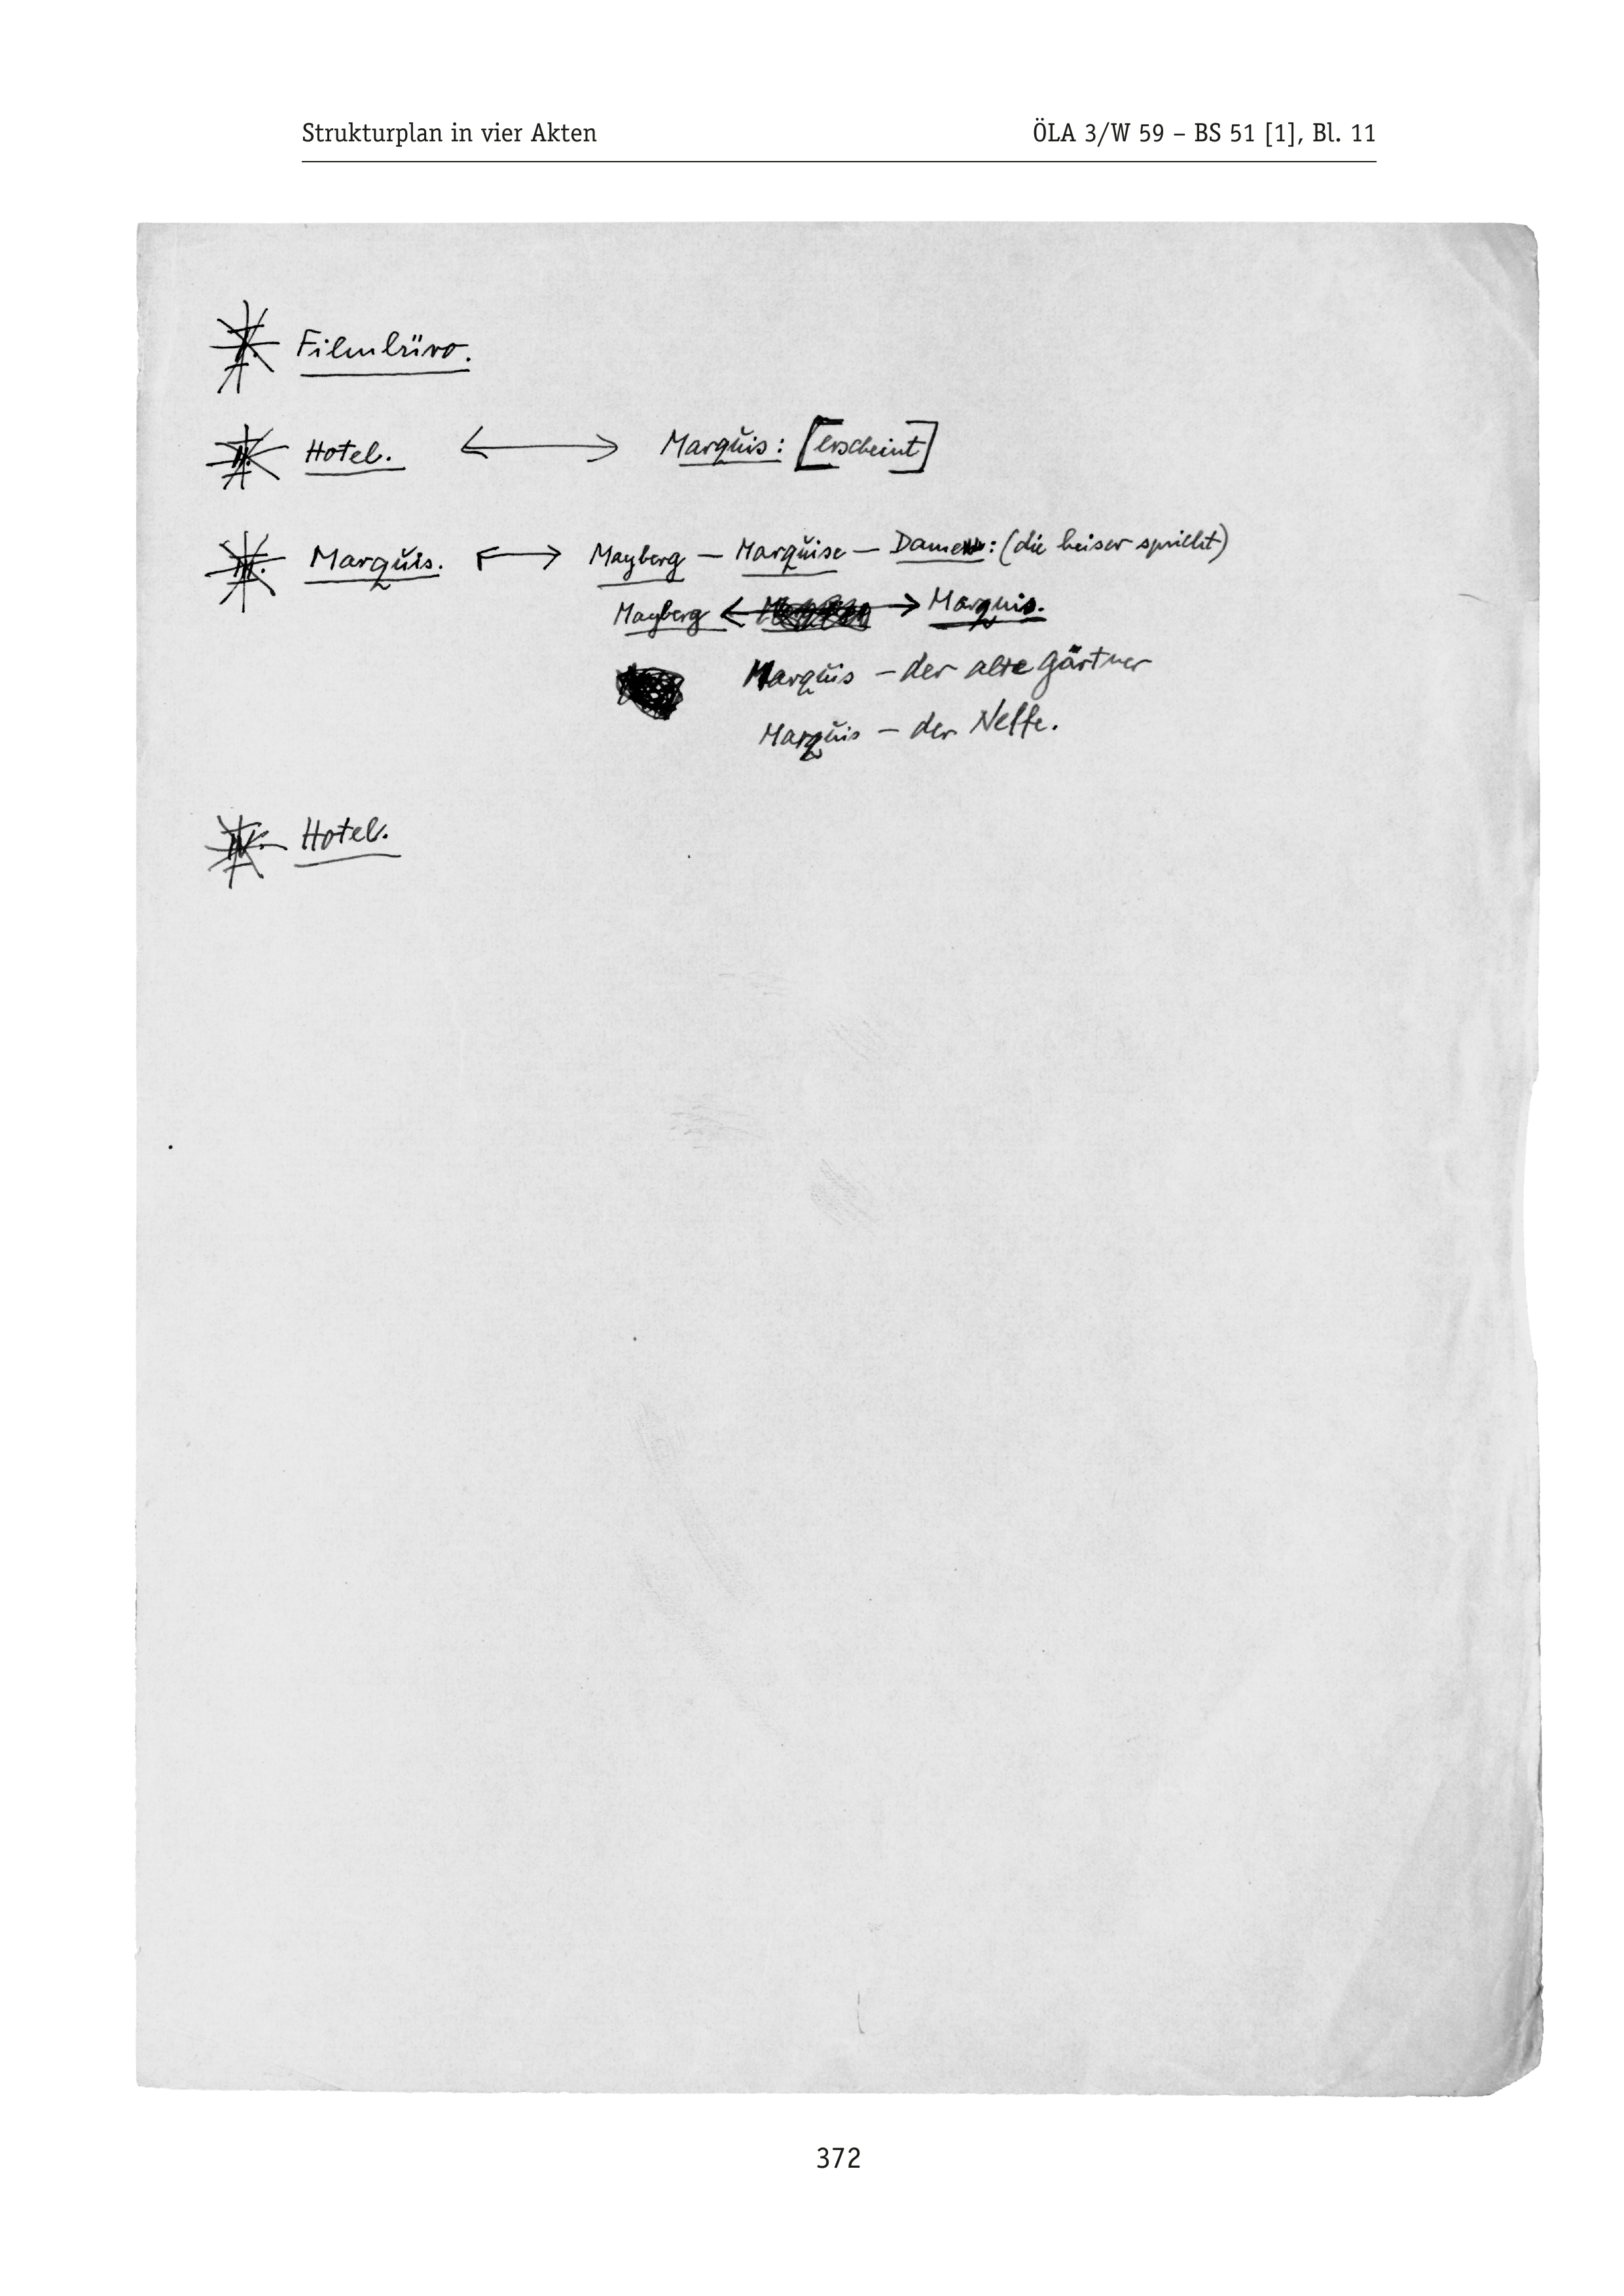 Strukturplan in vier Akten ÖLA 3/W 59 – BS 51 [1], Bl. 11
I. Filmbüro.
II. Hotel. ⟷ Marquis: [erscheint]
III. Marquis. ⟷ Mayberg — Marquise — Dame: (die heiser spricht)
Mayberg ⟷ Marquis.
Marquis — der alte Gärtner
Marquis — der Neffe.
IV. Hotel.
372